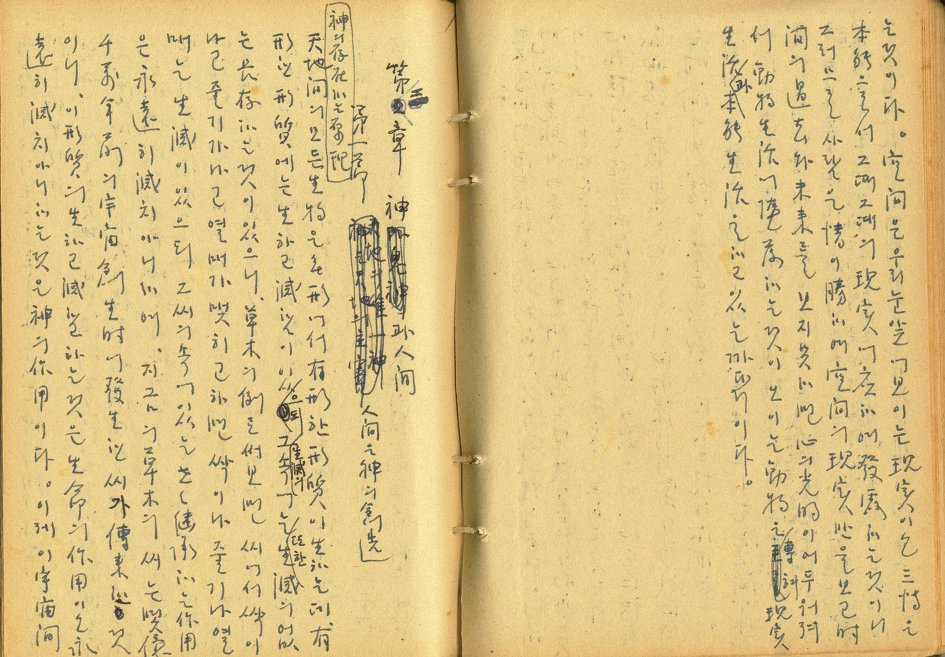 는것이다。空间은우리눈앞에보이는現実이오 三情은
本能으로서 그때그때의現実에应하야發露하는것이니
그러므로사람은情이勝하매空间의現実만을보고时
间의過去와未来를 보지못하면心의光明이어두워져
서動物生活에
生活과本能生活을하고있는까닭이다。
第三章 神과人间
第一節 人间은神의創造
神의存在하는原理
天地间의모든生物은無形에서有形한形質이生하는데有
形한形質에는生하고滅함이있으되그속에는生滅의없
는長存하는것이있으니、草木의例를써보면씨에서싹이
나고줄기가나고열매가맺히고하면싹이나줄기나열
매는生滅이있으되그씨의속에있는傳하는作用
은永遠히滅치아니하며、지금의草木의씨는
千萬年前의宇宙創生时에發生한씨가傳来한것
이니、이形質의生하고滅함하는것은生命의作用이오永
遠히滅치아니하는것은神의作用이다。이제이宇宙间